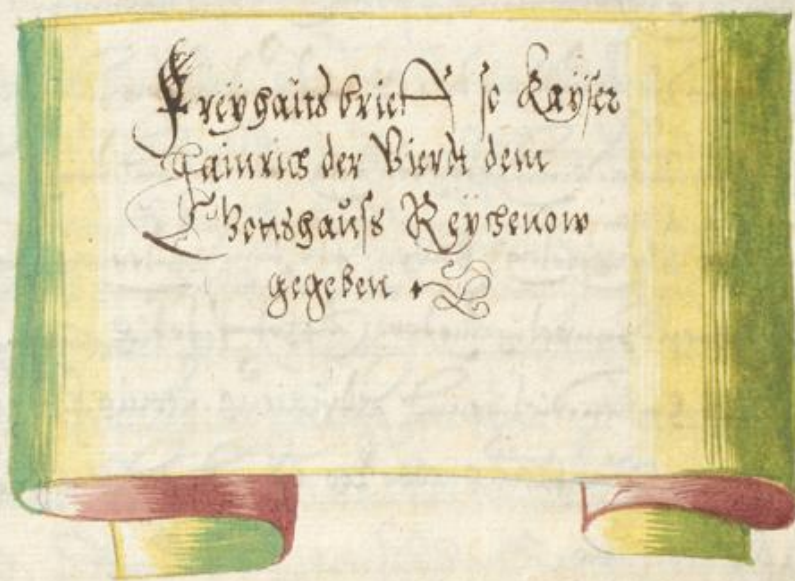 Freyhaits brieff so Kayser
Hainrich der Vierdt dem
Gottshauss Reychenow
gegeben